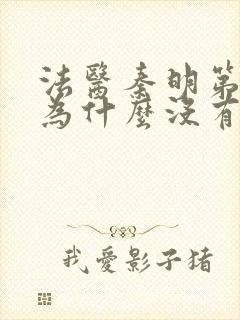 法醫秦明第
為什麼沒有
我愛影子猪